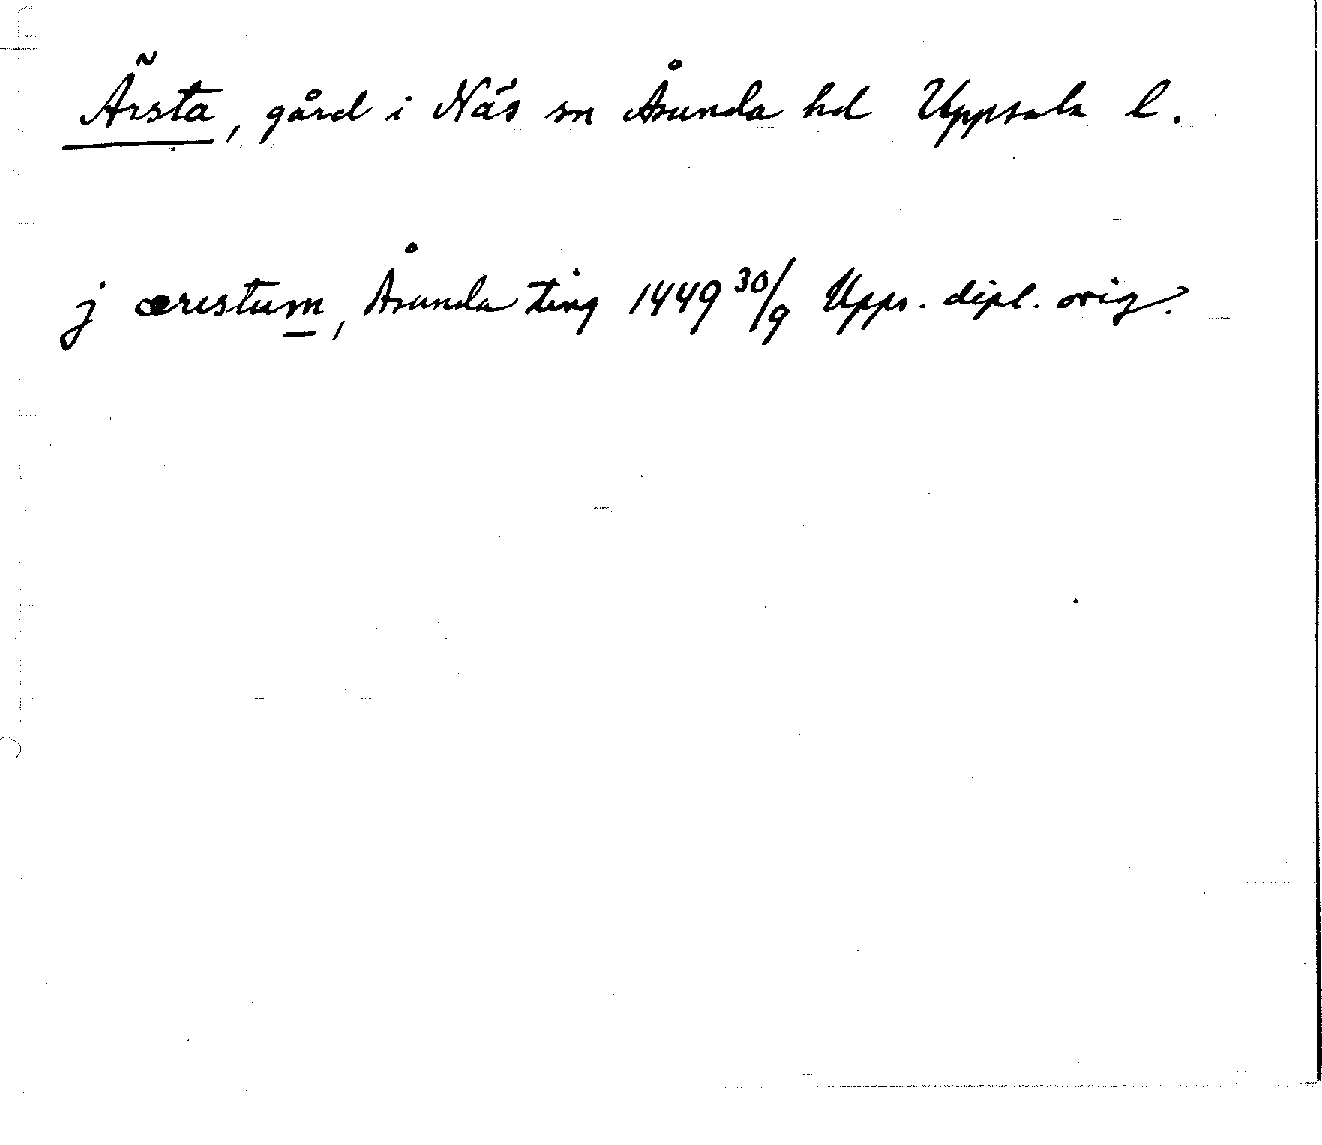 Ärsta, gård i Näs sn Åsunda hd Uppsala l.
j ærestum, Åsunda ting 1449 30/9 Upps. dipl. orig.